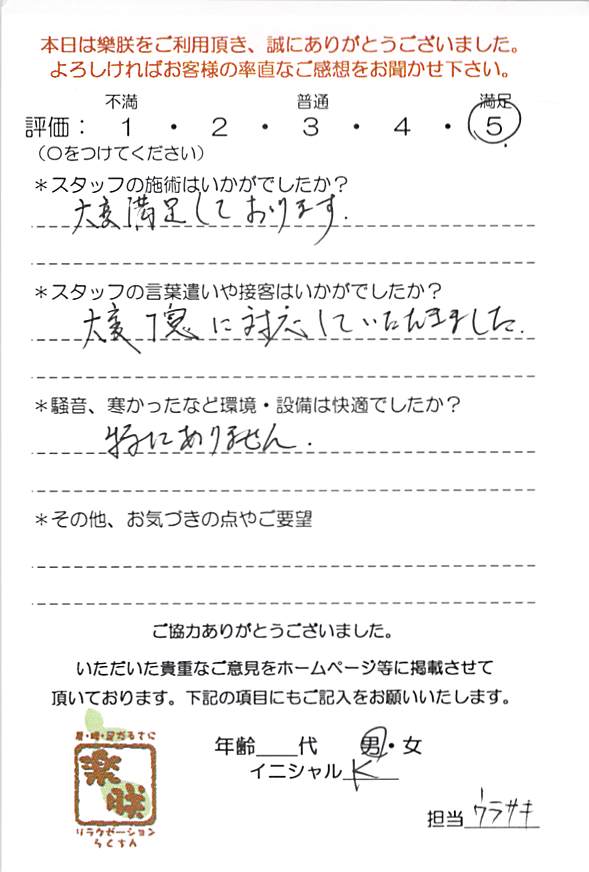 本日は樂朕をご利用頂き、誠にありがとうございました。
よろしければお客様の率直なご感想をお聞かせ下さい。
不満 普通 満足
評価： 1 ・ 2 ・ 3 ・ 4 ・ 5
（〇をつけてください）
＊スタッフの施術はいかがでしたか？
大変満足しております.
＊スタッフの言葉遣いや接客はいかがでしたか？
大変丁寧に対応していただきました.
＊騒音、寒かったなど環境・設備は快適でしたか？
特にありません.
＊その他、お気づきの点やご要望
ご協力ありがとうございました。
いただいた貴重なご意見をホームページ等に掲載させて
頂いております。下記の項目にもご記入をお願いいたします。
肩・腰・足だるすに
樂朕
リラクゼーション
らくちん
年齢＿＿代 男・女
イニシャル K
担当 ウラサキ